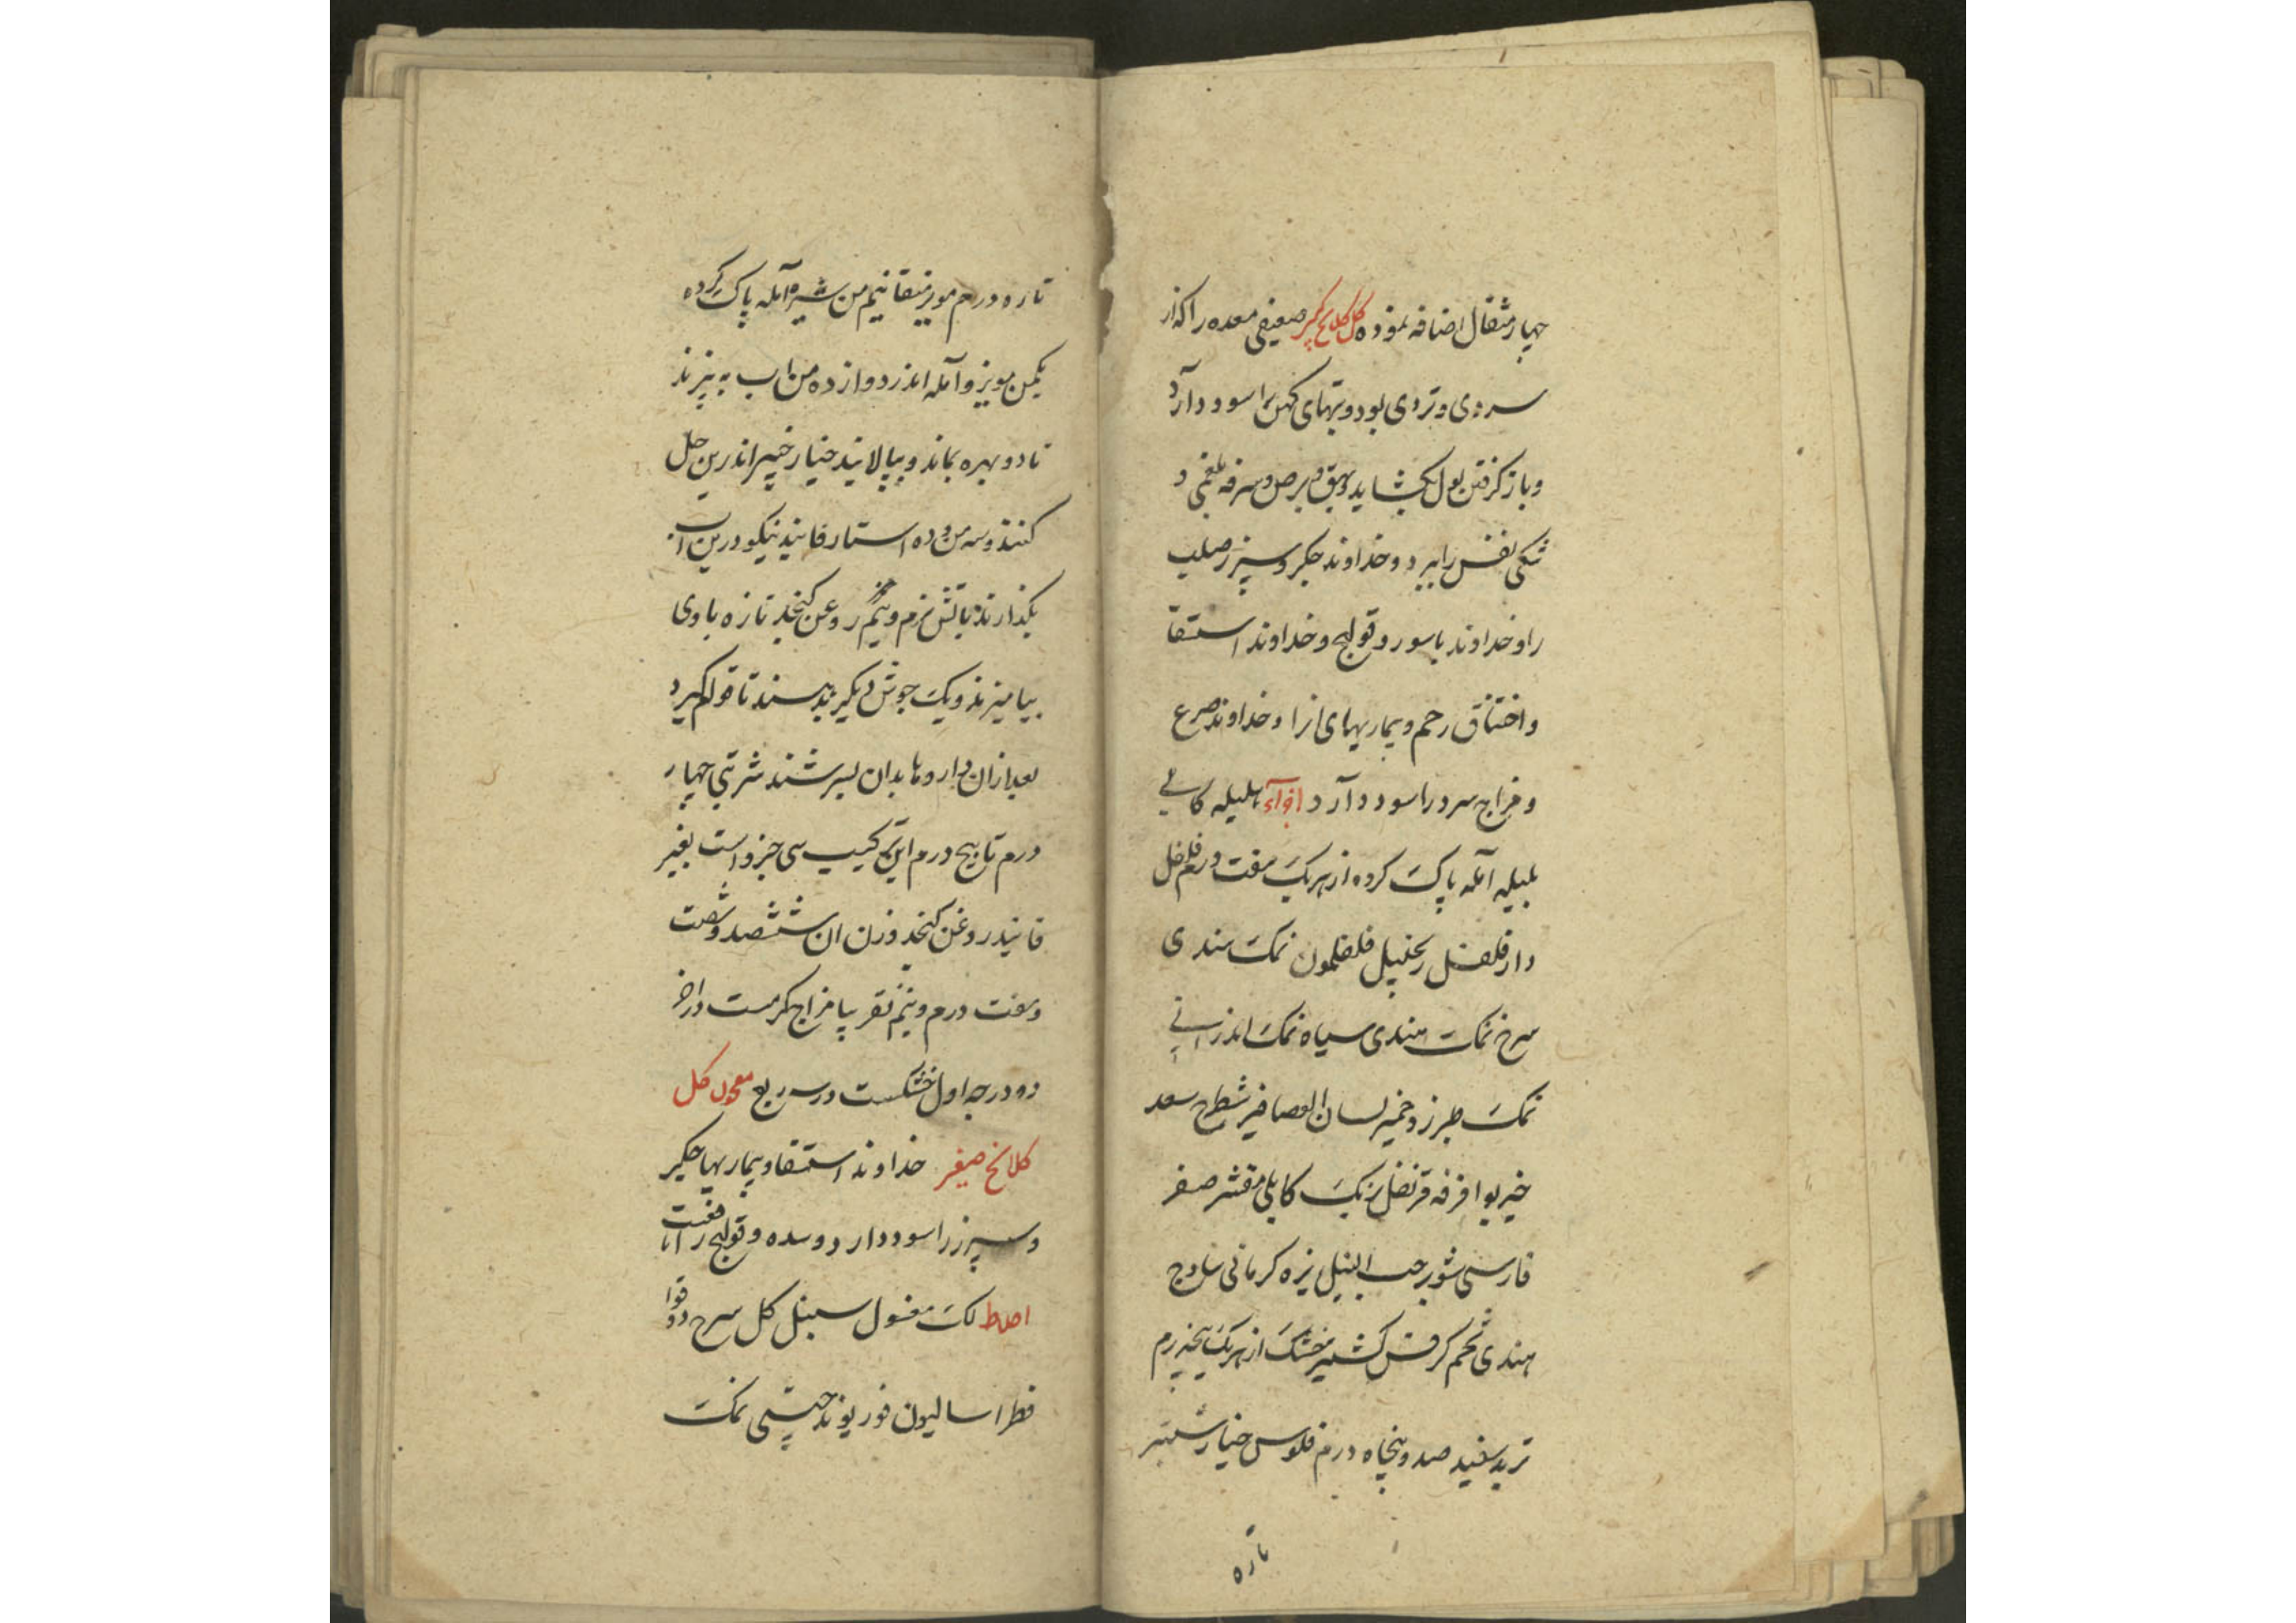 چهار مثقال اضافه نموده کل کلانج کبیر ضعیفی معده را که از
سردی و تردی بود و تبهای کهن را سود دارد
و باز گرفتن بول بگشاید و بهق و برص و سرفه بلغمی و
تنکی نفس را ببرد و خداوند جکر و سپرز صلب
را و خداوند باسور و قولنج و خداوند استسقا
و اختناق رحم و بیماریهای انرا و خداوند صرع
و مزاج سرد را سود دارد اجزآء هلیله کابلی
بلیله آمله پاک کرده از هریک هفت درم فلفل
دارفلفل زنجبیل فلفلمون نمک هندی
سرخ نمک هندی سیاه نمک اندرانی
نمک طبرزد خمیر لسان العصافیر شیطرج سعد
خیربوا قرفه قرنفل برنک کابلی مقشر صعتر
فارسی حب النیل زیره کرمانی سادج
هندی تخم کرفس کشنیز خشک از هریک پنجدرم
تربد سفید صد و پنجاه درم فلوس خیارشنبر
تازه
تازه درم مویز منقا نیم من شیره آمله پاک کرده
یکمن مویز و آمله اندر دوازده من اب به پزند
تا دو بهره بماند و بپالایند خیار خمیر اندرین حل
کنند و سه من و ده استار فانیذ نیکو درین اب
بکذارند باتش نرم و نیم من روغن کنجد تازه باوی
بیامیزند و یک جوش دیکر بدهند تا قوام کیرد
بعد ازان داروها بدان بسرشند شربتی چهار
درم تا پنج درم این ترکیب سی جزو است بغیر
فانیذ روغن کنجد وزن ان ششصد و شصت
و هفت درم و نیم تقریبا مزاج کرمست در اخر
دو درجه اول خشکست در ربع معجون کل
کلانج صغیر خداوند استسقا و بیماریها جکر
و سپرز را سود دارد و سده و قولنج را
اخلاط لک مغسول سنبل کل سرخ دوقوا
فطراسالیون فو ریوند چینی نمک